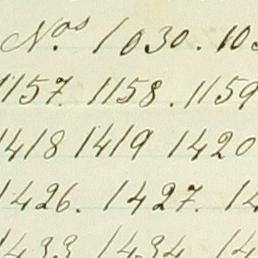 Nos 1030. 103
1157. 1158. 1159
1418 1419 1420
1426. 1427. 14
1433 1434 14